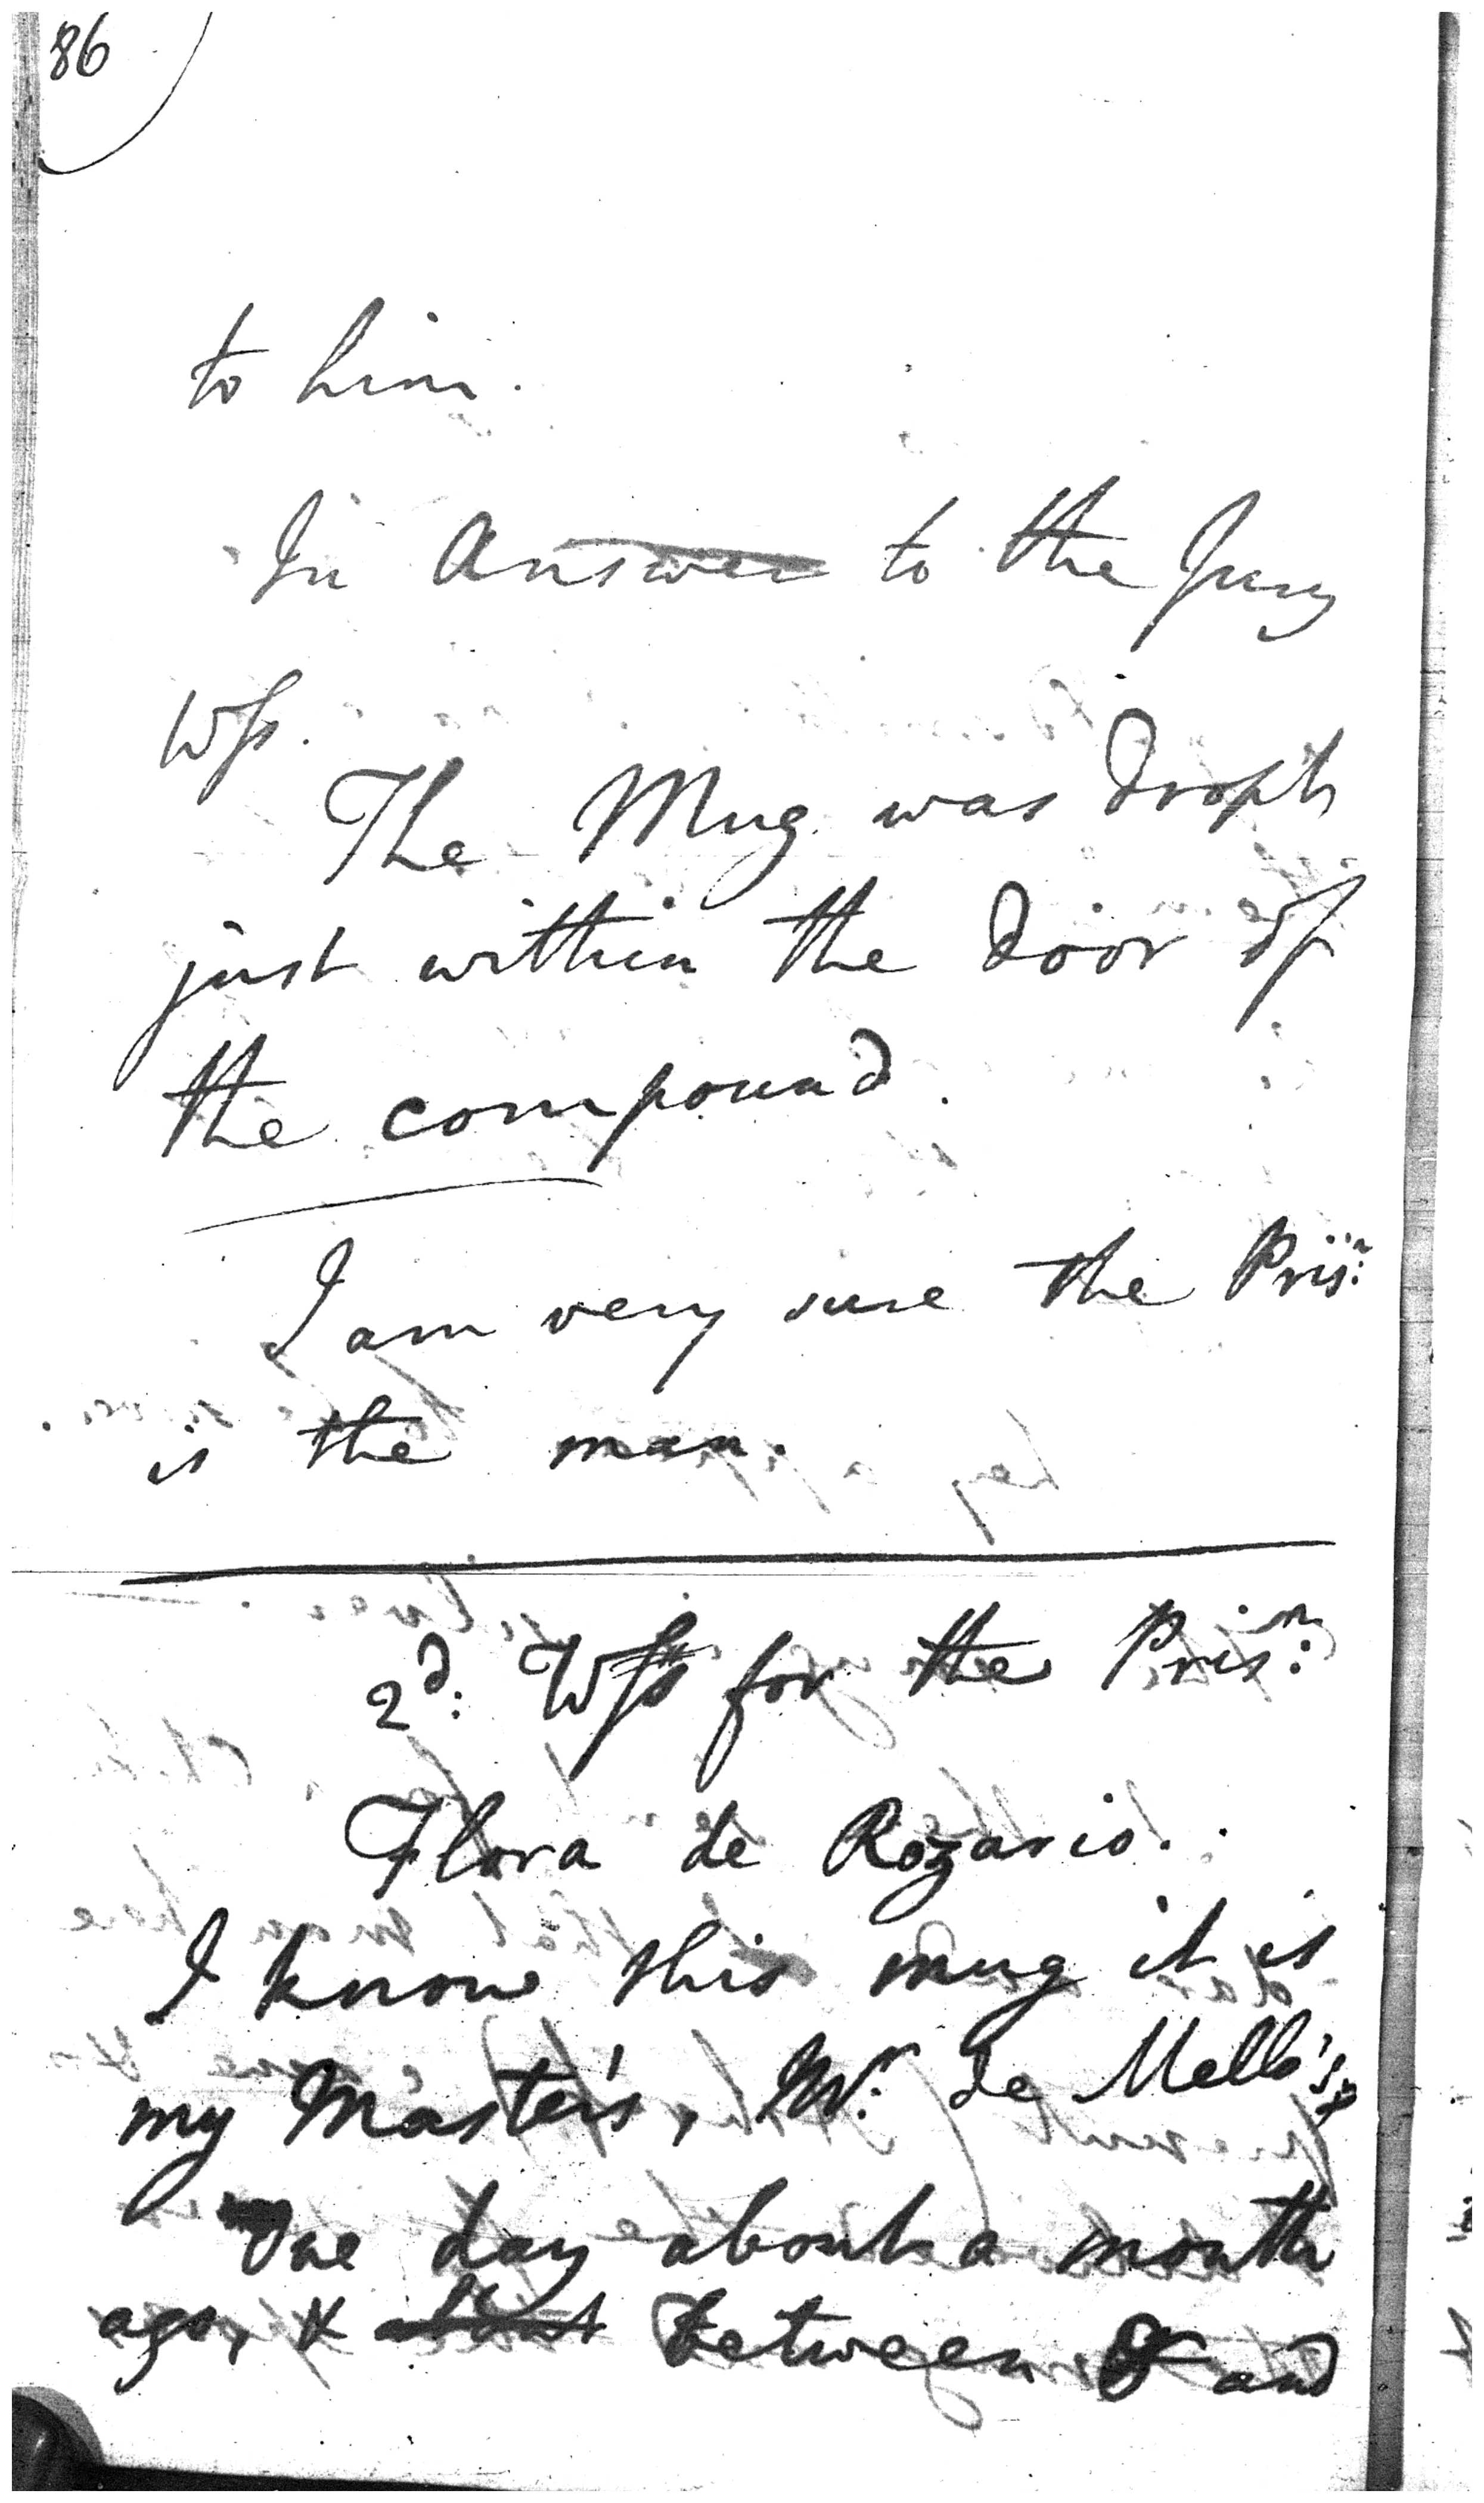 86
to him.
In Answer to the Jury
Wss.
The Mug was dropt
just within the door of
the compound.
I am very sure the Prisr.
is the man.
2d. Wss for the Prisr.
Flora de Rozario.
I know this mug it is
my Master's, Mr. de Mello's,
One day about a month
ago, & about between 8 and